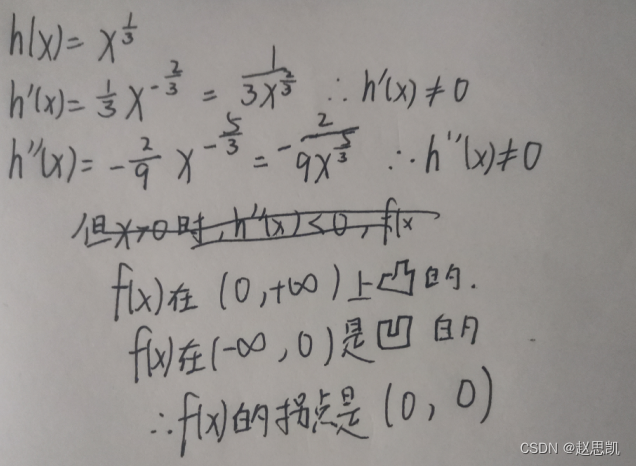 h(x) = x^{1/3}
h'(x) = 1/3 x^{-2/3} = 1/(3x^{2/3}) ∴ h'(x) ≠ 0
h''(x) = -2/9 x^{-5/3} = -2/(9x^{5/3}) ∴ h''(x) ≠ 0
但x>0时,h''(x)<0,f(x
f(x)在 (0,+∞)上凸的.
f(x)在(-∞,0)是凹的
∴f(x)的拐点是(0,0)
CSDN @赵思凯